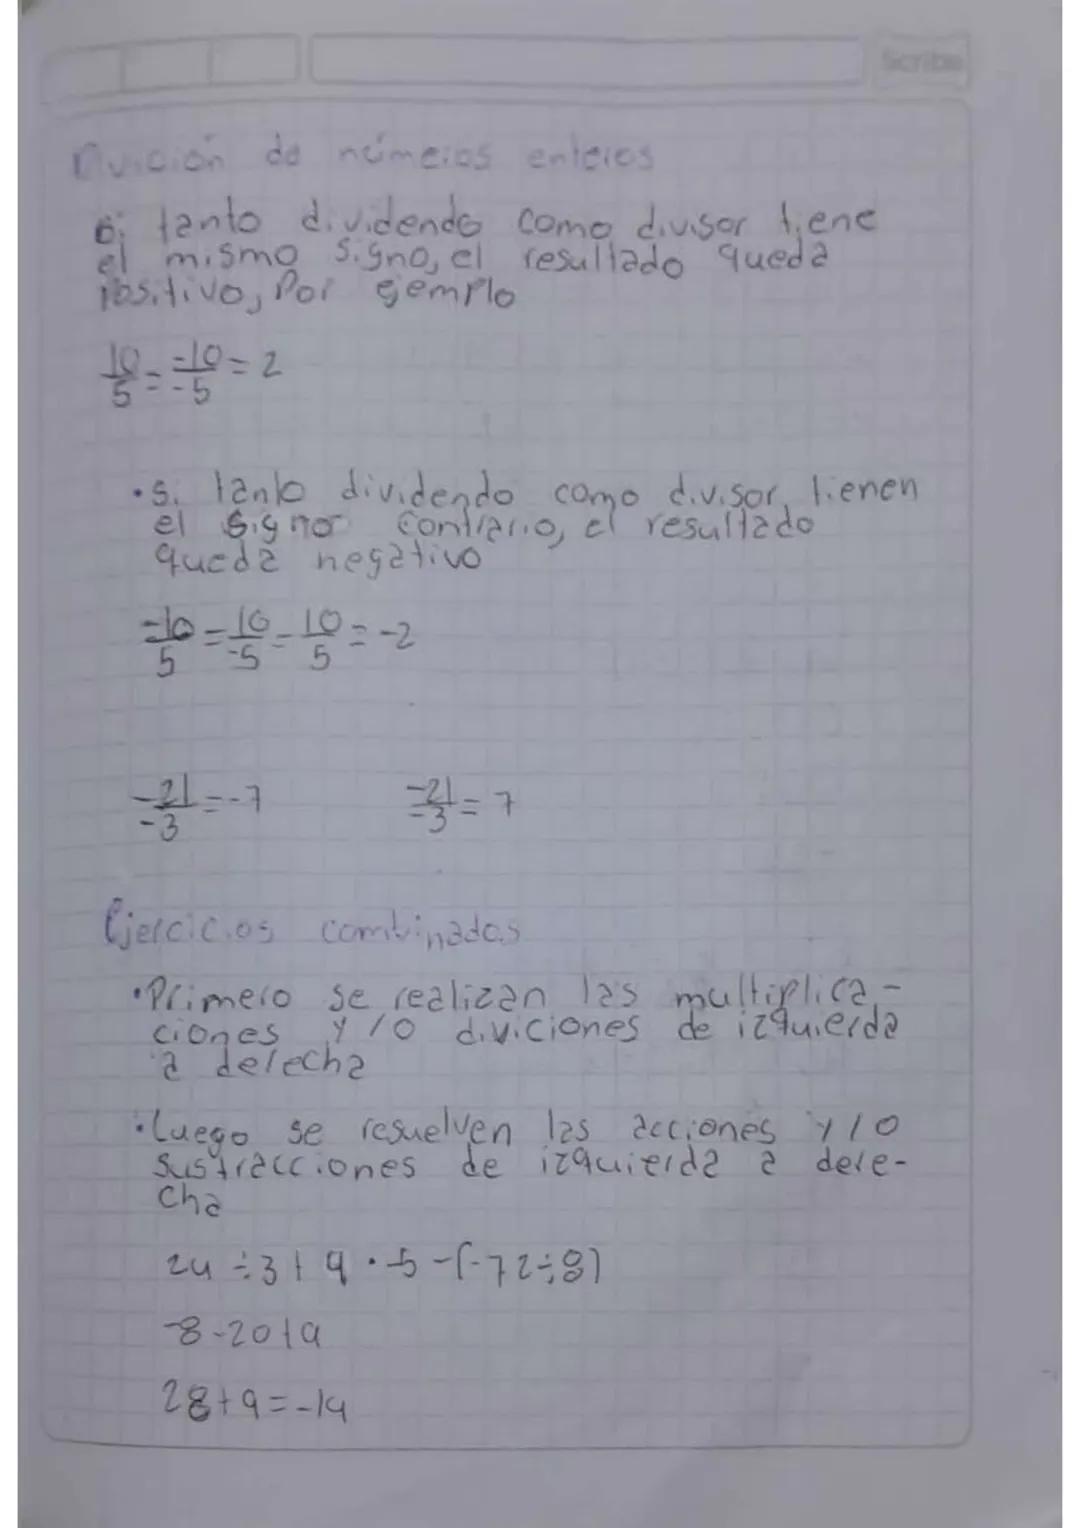 Scribe
Divición de números enteros
Si tanto dividendo como divisor tiene
el mismo signo, el resultado queda
positivo, Por ejemplo
10/5 = -10/-5 = 2
• Si tanto dividendo como divisor tienen
el signor contrario, el resultado
queda negativo
-10/5 = 10/-5 - 10/5 = -2
-21/-3 = -7 -21/-3 = 7
Ejercicios combinados
• Primero se realizan las multiplica-
ciones y/o diviciones de izquierda
a derecha
• Luego se resuelven las acciones y/o
sustracciones de izquierda a dere-
cha
24 ÷ 3 + 4 · -5 - (-72 ÷ 8)
-8 - 20 + 9
28 + 9 = -19